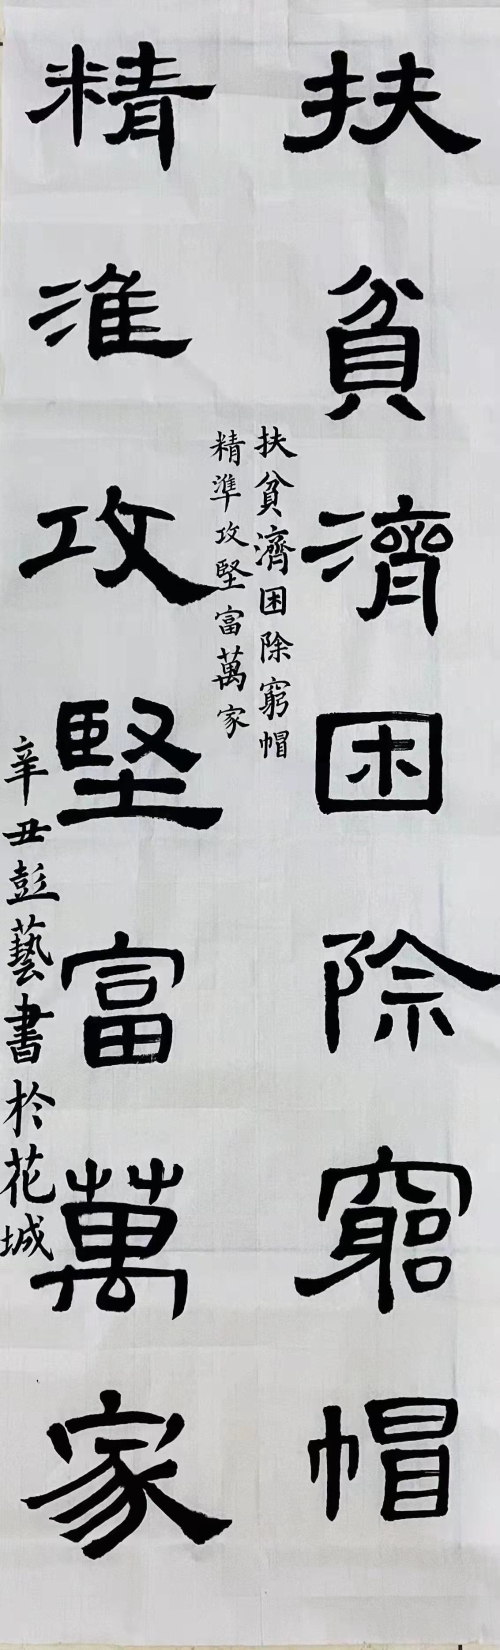 扶貧濟困除窮帽
扶貧濟困除窮帽
精準攻堅富萬家
精准攻堅富萬家
辛丑彭藝書於花城